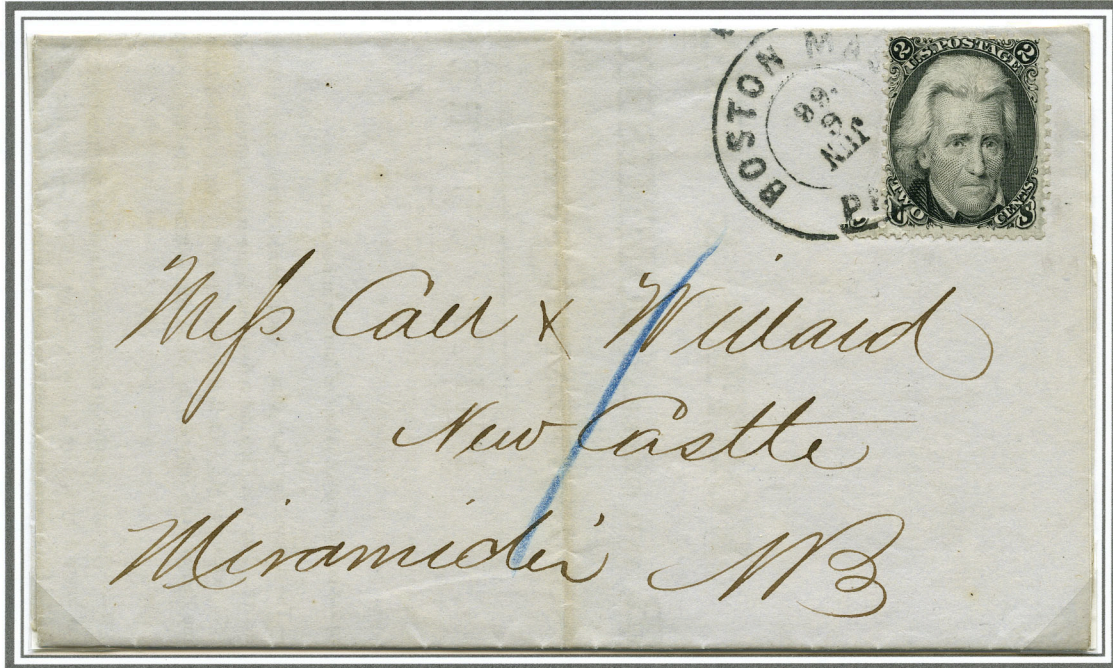 BOSTON MAS
JUN
6
68
2 U.S. POSTAGE 2
TWO CENTS
Mess. Carr & Willard
New Castle
Miramichi NB